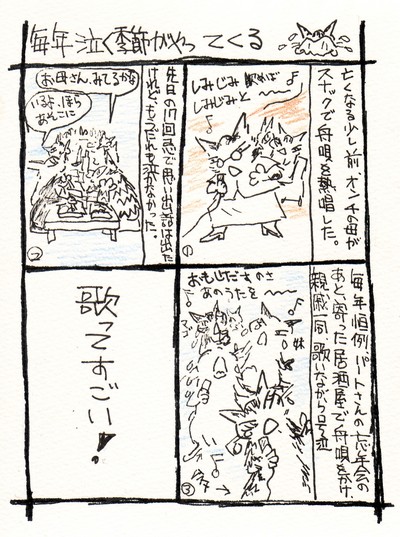 毎年泣く季節がやってくる
亡くなる少し前オンチの母が
スナックで舟唄を熱唱した。
しみじみ飲めば
しみじみと〜♪
①
先日の17回忌で思い出話は出た
けれど、もうだれも泣かなかった。
お母さん、みてるかな
いるよ、ほら
あそこに
②
毎年恒例、パートさんの忘年会の
あと、寄った居酒屋で舟唄をかけ、
親戚一同、歌いながら号泣
おもいだすのさ
あのうたを〜♪
妹
③
歌ってすごい!